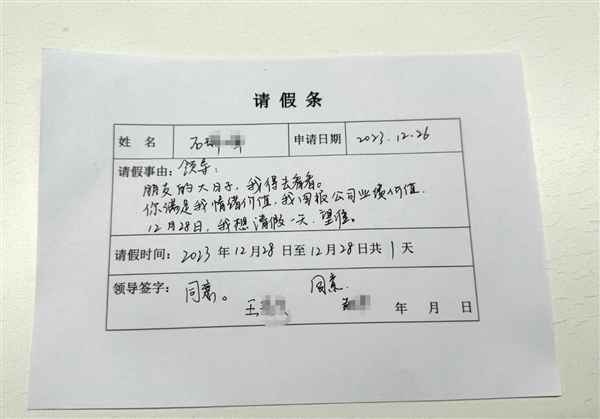 请假条
姓 名 石 申请日期 2023.12.26
请假事由：领导：
朋友的大日子，我得去看看。
你满足我情绪价值，我回报公司业绩价值。
12月28日，我想请假一天，望准。
请假时间：2023年12月28日至12月28日共1天
领导签字：同意。 同意.
王 年 月 日